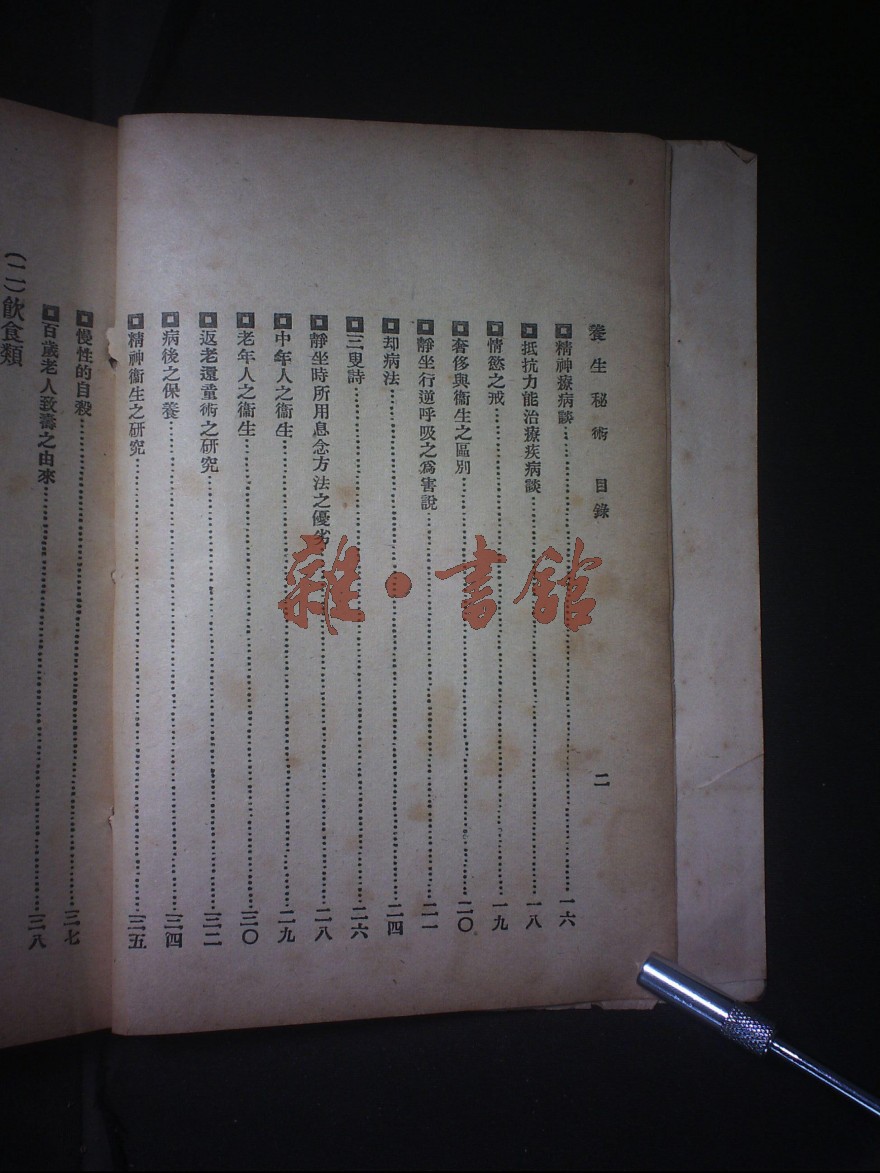 養生秘術　目錄　二
精神療病談……一六
抵抗力能治療疾病談……一八
情慾之戒……一九
奢侈與衞生之區別……二〇
靜坐行逆呼吸之爲害說……二一
却病法……二四
三叟詩……二六
靜坐時所用息念方法之優劣……二八
中年人之衞生……二九
老年人之衞生……三〇
返老還童術之研究……三二
病後之保養……三四
精神衞生之研究……三五
慢性的自殺……三七
百歲老人致壽之由來……三八
(二)飲食類
雜·書館